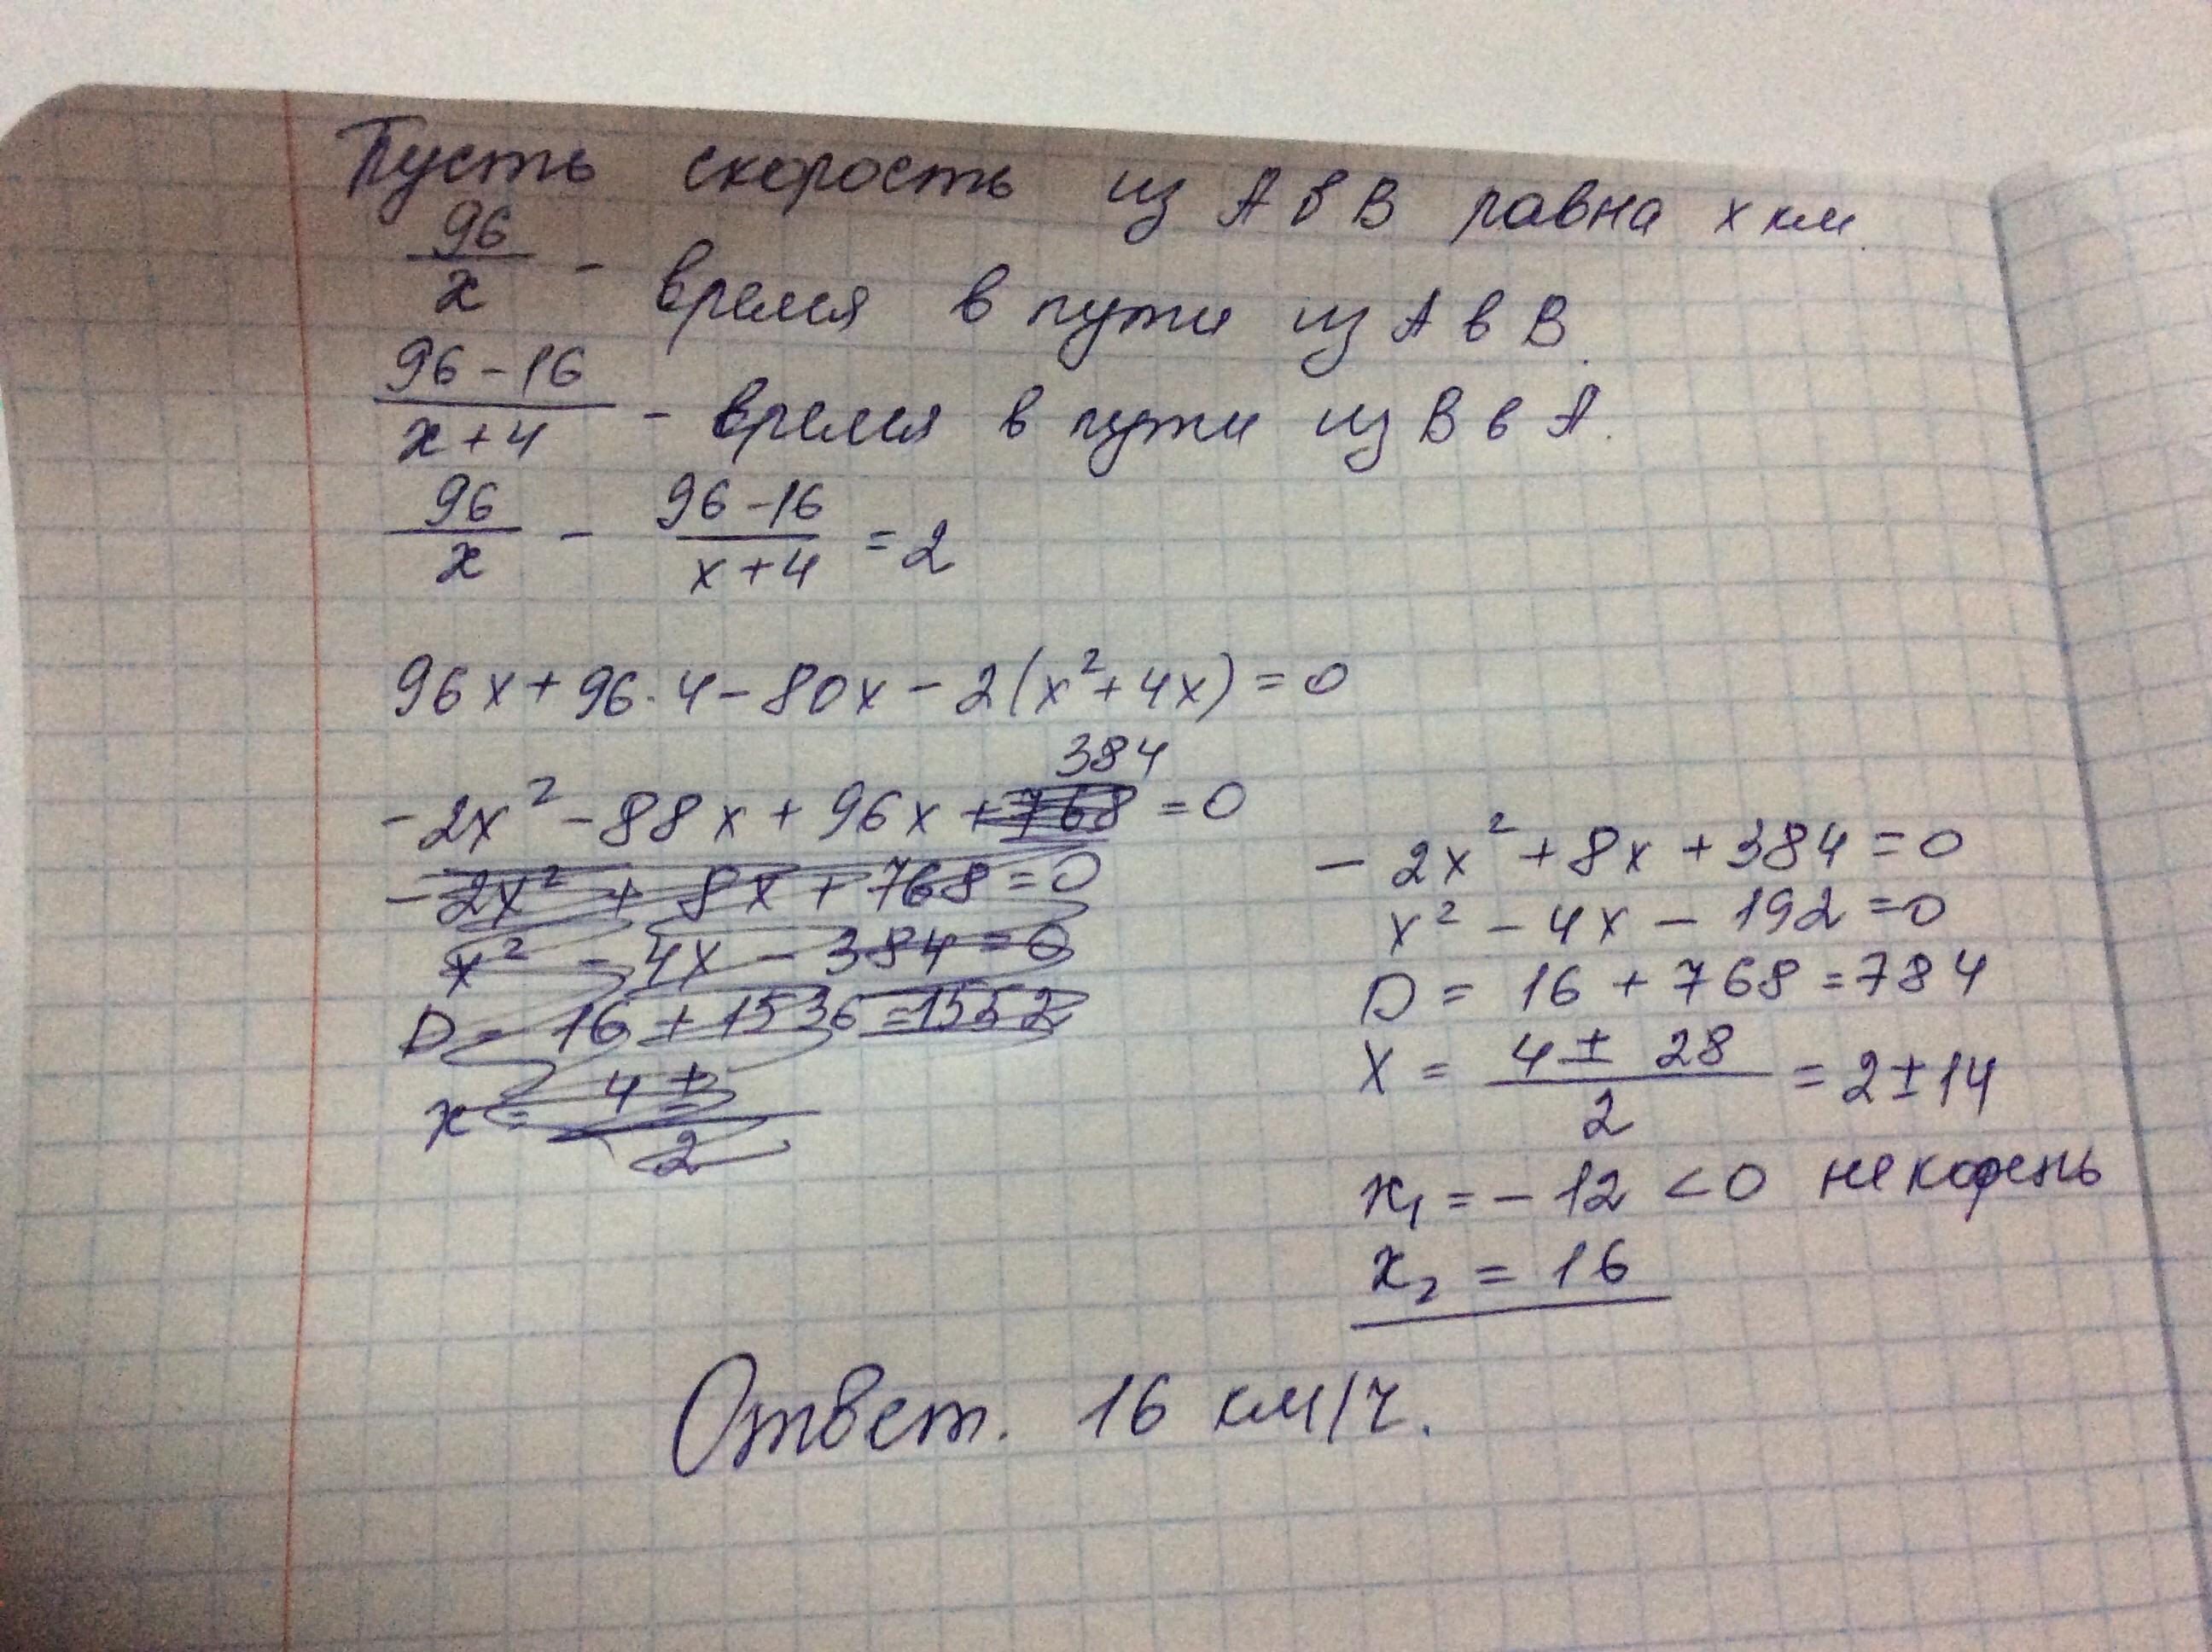 Пусть скорость из А в В равна х км.
96/x - время в пути из А в В.
(96-16)/(x+4) - время в пути из В в А.
96/x - (96-16)/(x+4) = 2
96x + 96·4 - 80x - 2(x²+4x) = 0
384
-2x² - 88x + 96x + 768 = 0
-2x² + 8x + 768 = 0
x² - 4x - 384 = 0
D = 16 + 1536 = 1552
x = (4±)/2
-2x² + 8x + 384 = 0
x² - 4x - 192 = 0
D = 16 + 768 = 784
x = (4 ± 28)/2 = 2 ± 14
x₁ = -12 < 0 не корень
x₂ = 16
Ответ. 16 км/ч.